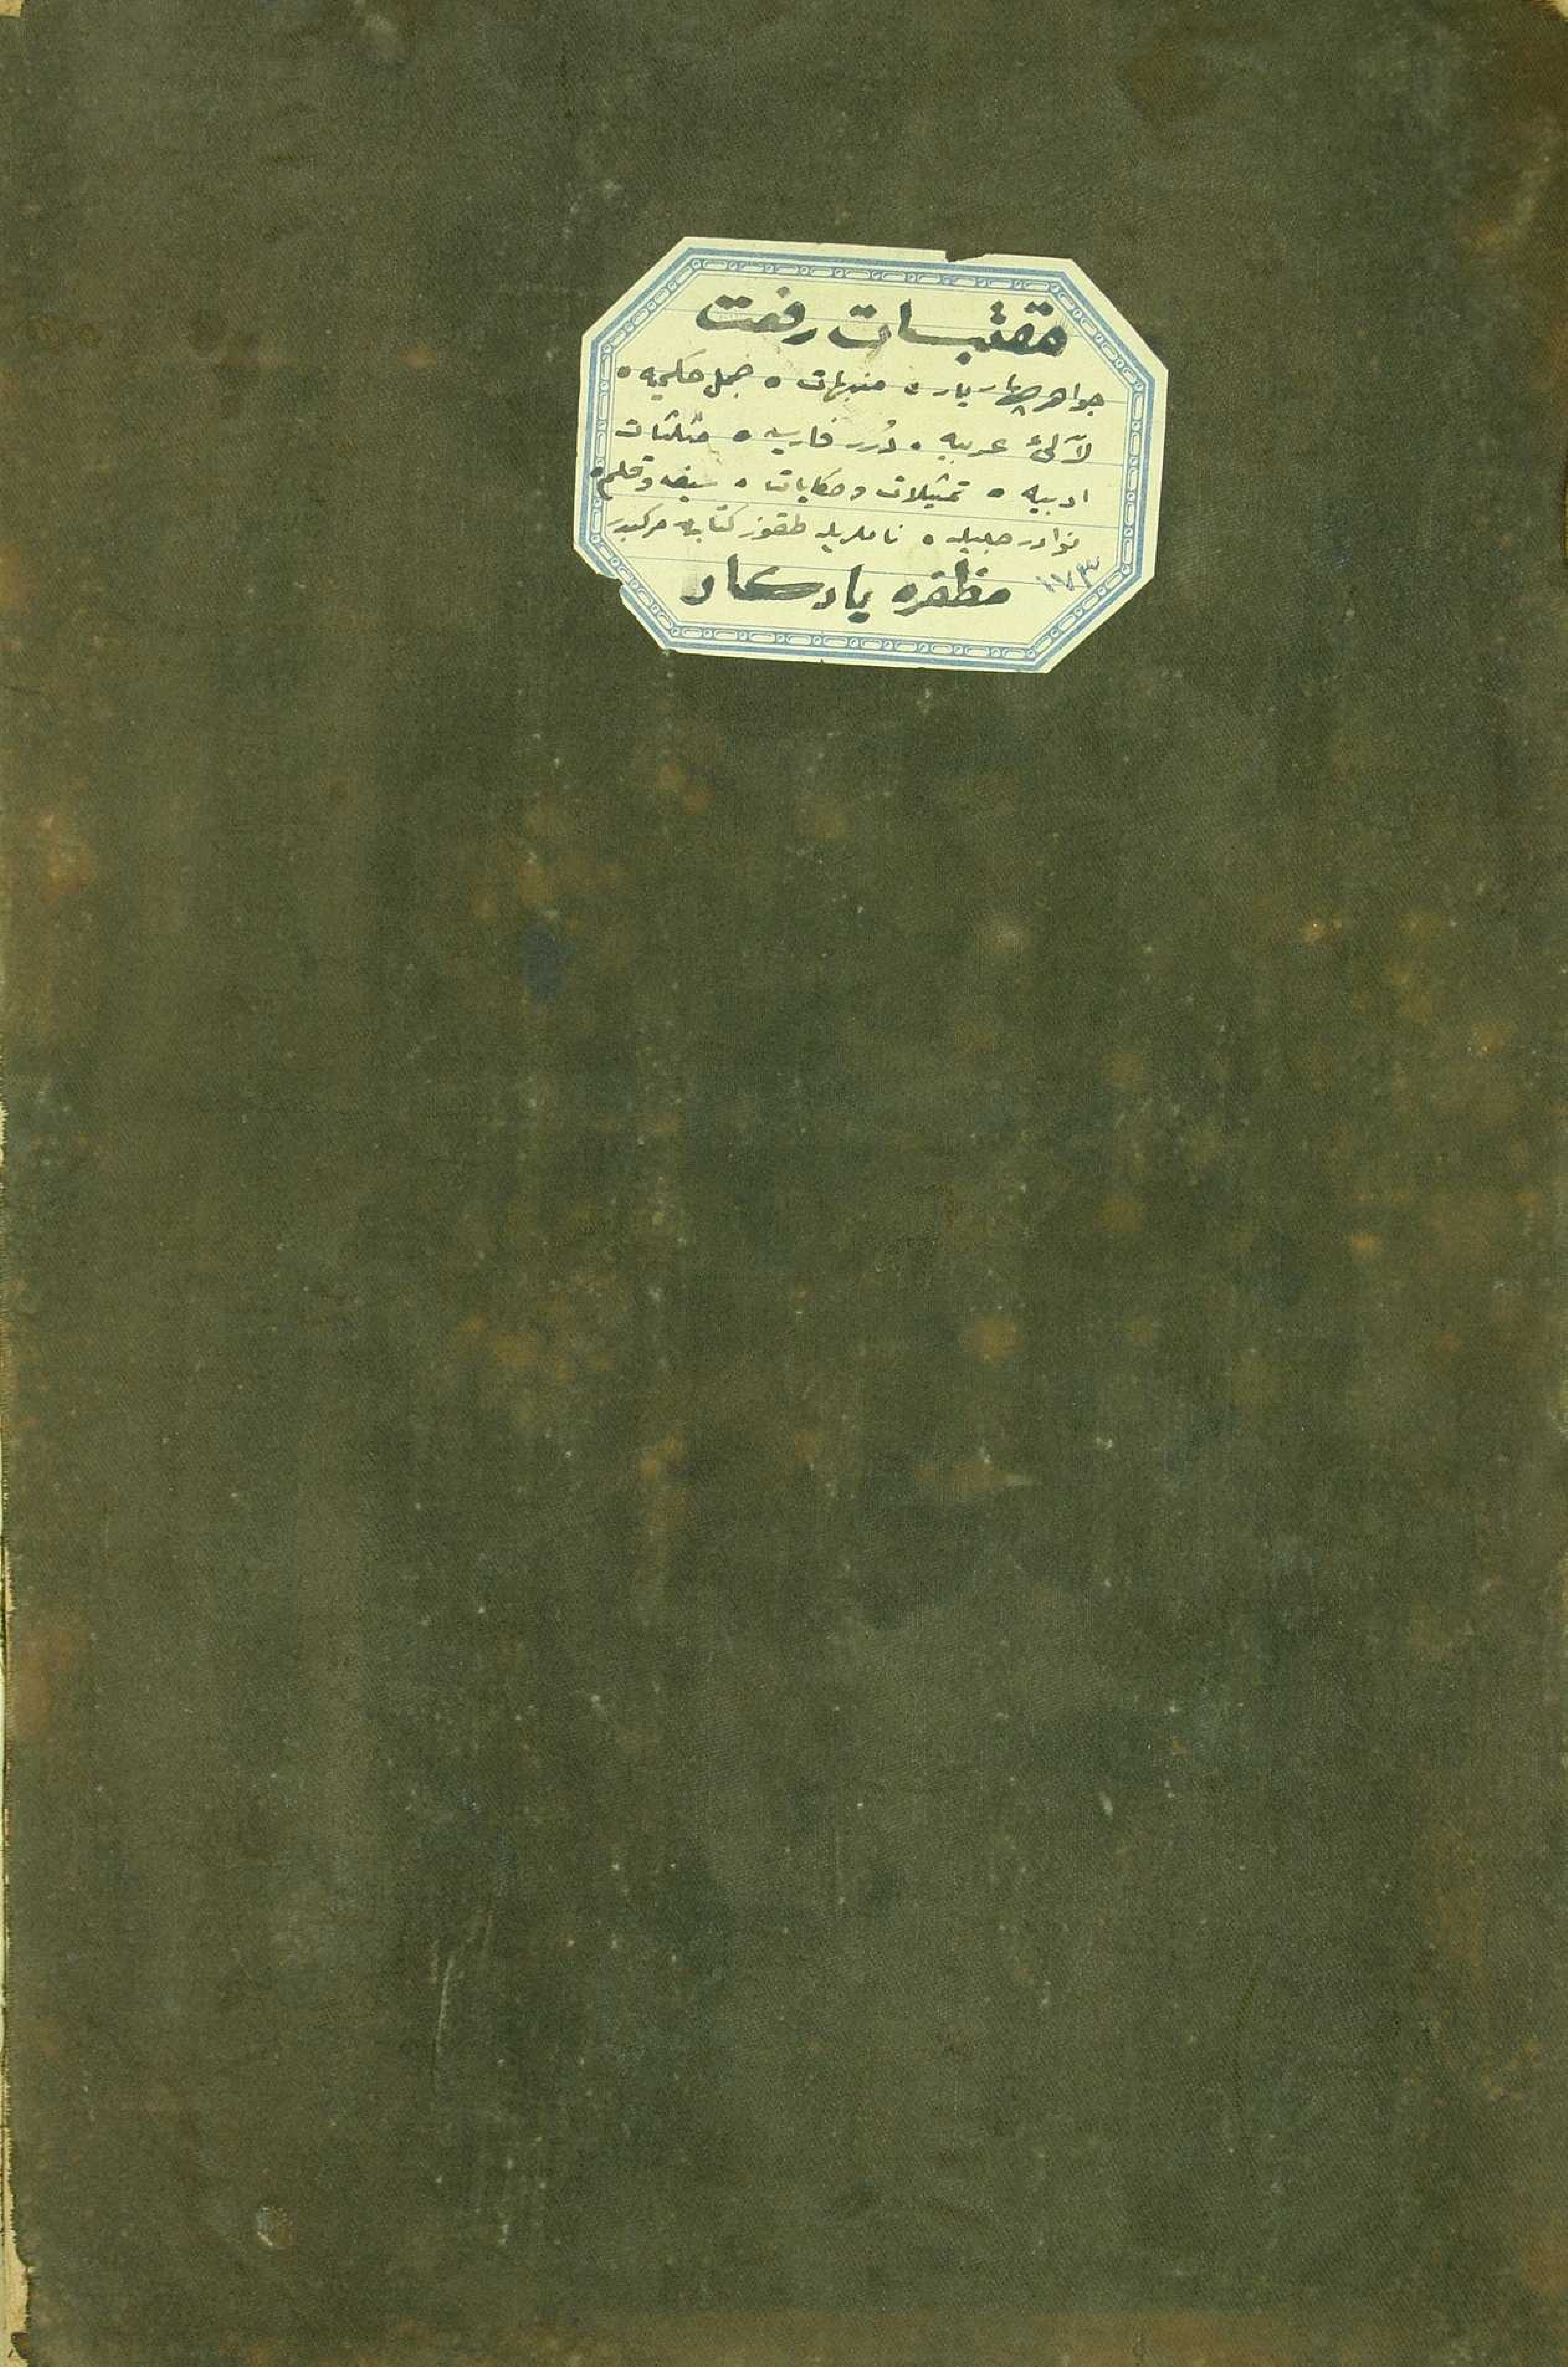 مقتبسات رفعت
جواهر چهار یار ه منبهات ه جمل حکمیه ه
لآلئ عربیه ه دُرر فارسیه ه مثلثات
ادبیه ه تمثیلات و حکایات ه سیف و قلم ه
نوادر جلیله ه ناملریله طقوز کتابدن مرکبدر
مظفره یادکار
١٧٣